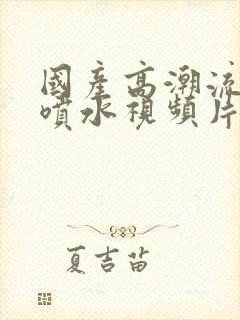 國產高潮流
噴水視頻片
夏吉苗